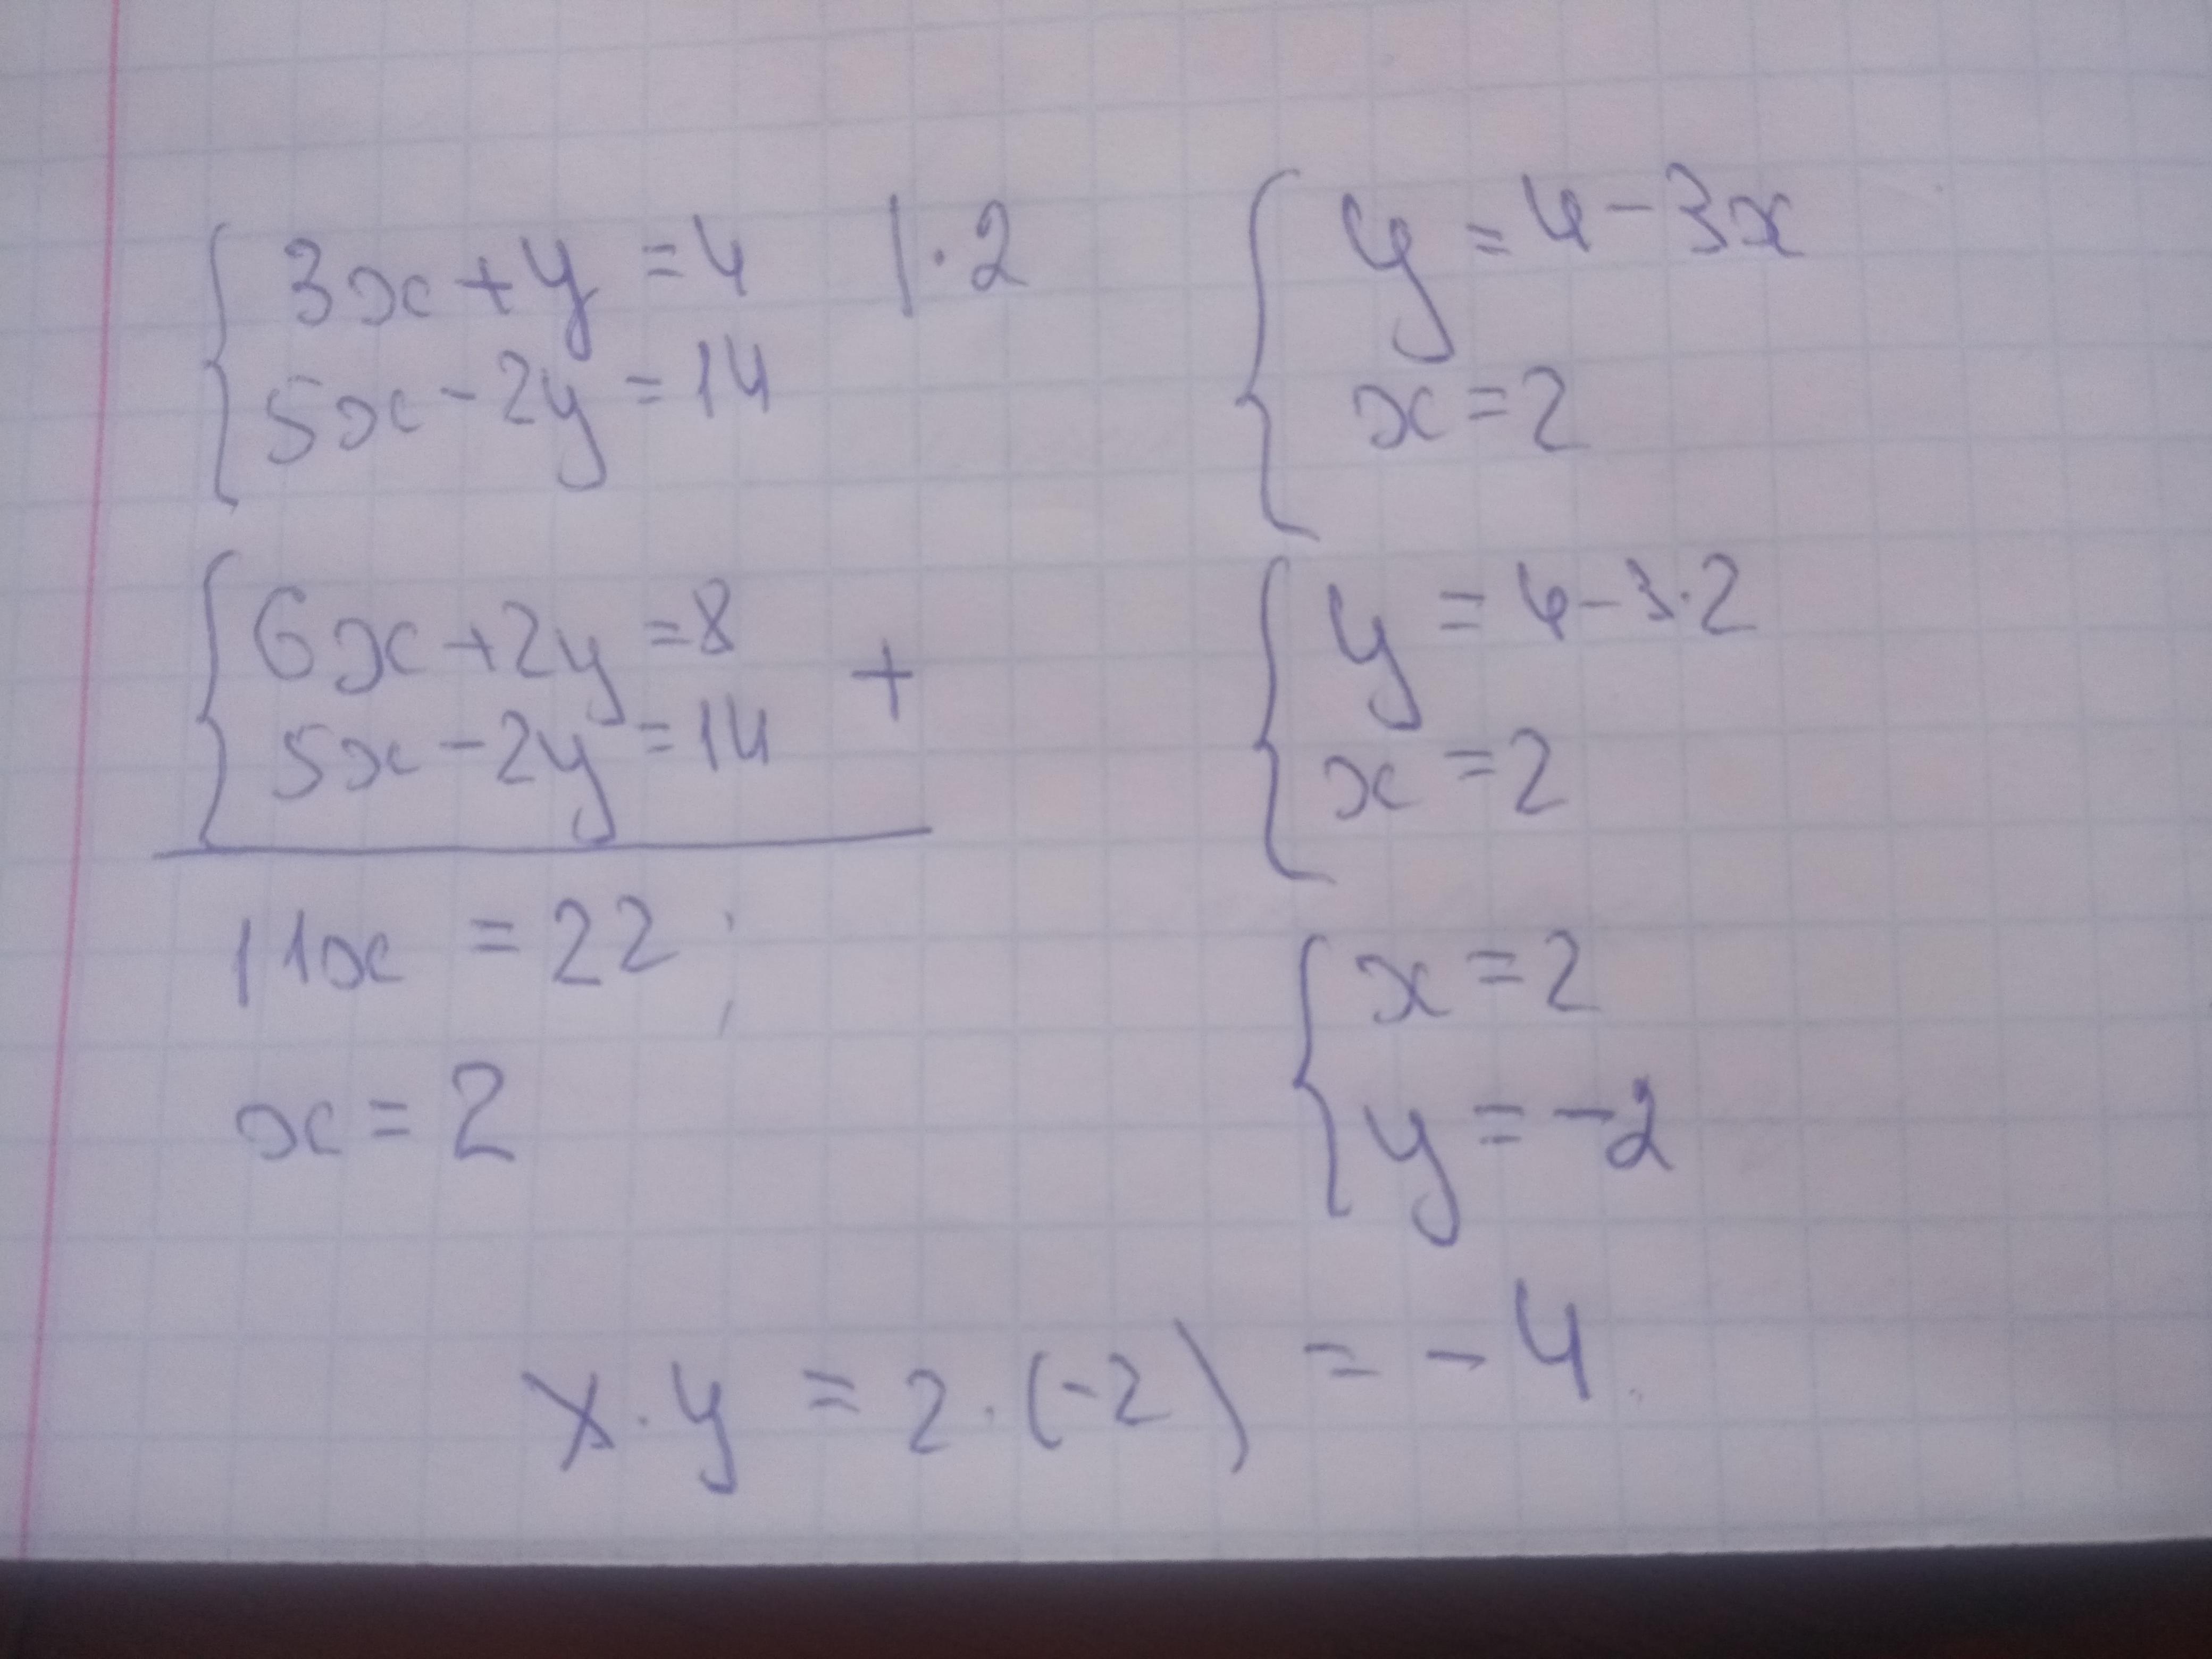 3x+y=4 |·2
5x-2y=14
6x+2y=8
5x-2y=14 +
11x=22;
x=2
y=4-3x
x=2
y=4-3·2
x=2
x=2
y=-2
x·y=2·(-2)=-4.